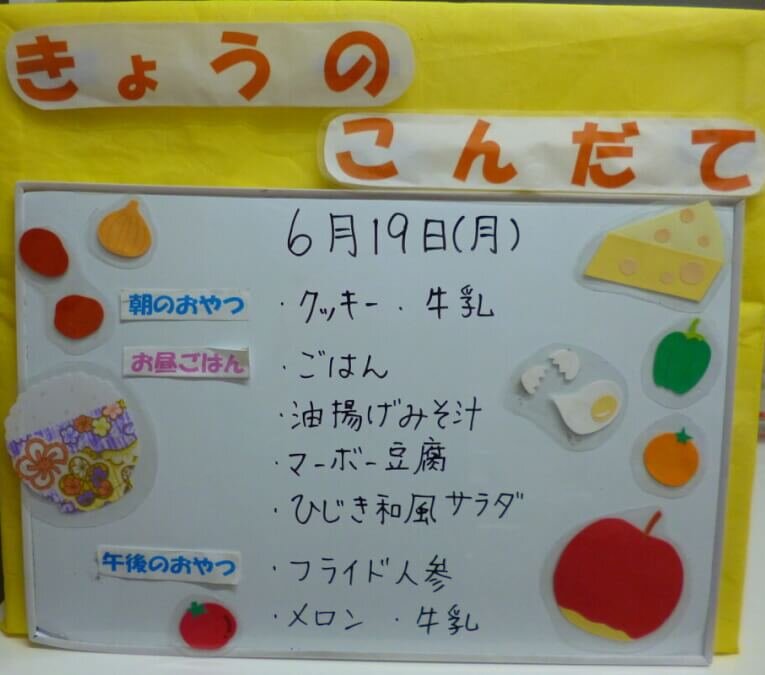 きょうの
こんだて
6月19日(月)
朝のおやつ ・クッキー ・牛乳
お昼ごはん ・ごはん
・油揚げみそ汁
・マーボー豆腐
・ひじき和風サラダ
午後のおやつ ・フライド人参
・メロン ・牛乳